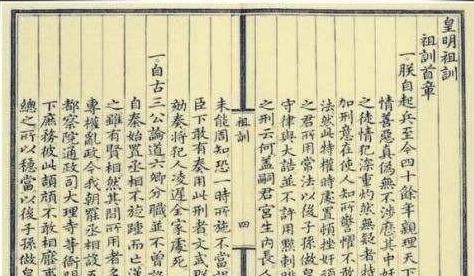 皇明祖訓
祖訓首章
一朕自起兵至今四十餘年親理天下
情善惡真偽無不涉歷其中奸
之徒情犯深重灼然無疑者特
加刑意在使人知所警懼不
法然此特權時處置頓挫奸頑
之君所用常法以後子孫做皇
守律與大誥並不許用黥刺
之刑云何蓋嗣君宮生內長人
祖訓
四
未能周知恐一時所施不當
臣下敢有奏用此刑者文武群
劾奏將犯人凌遲全家處死
一自古三公論道六卿分職並不曾設
自秦始置丞相不旋踵而亡漢
之雖有賢相然其間所用者多
專權亂政今我朝罷丞相設五
都察院通政司大理寺等衙門
下庶務彼此頡頏不敢相壓事
總之所以穩當以後子孫做皇